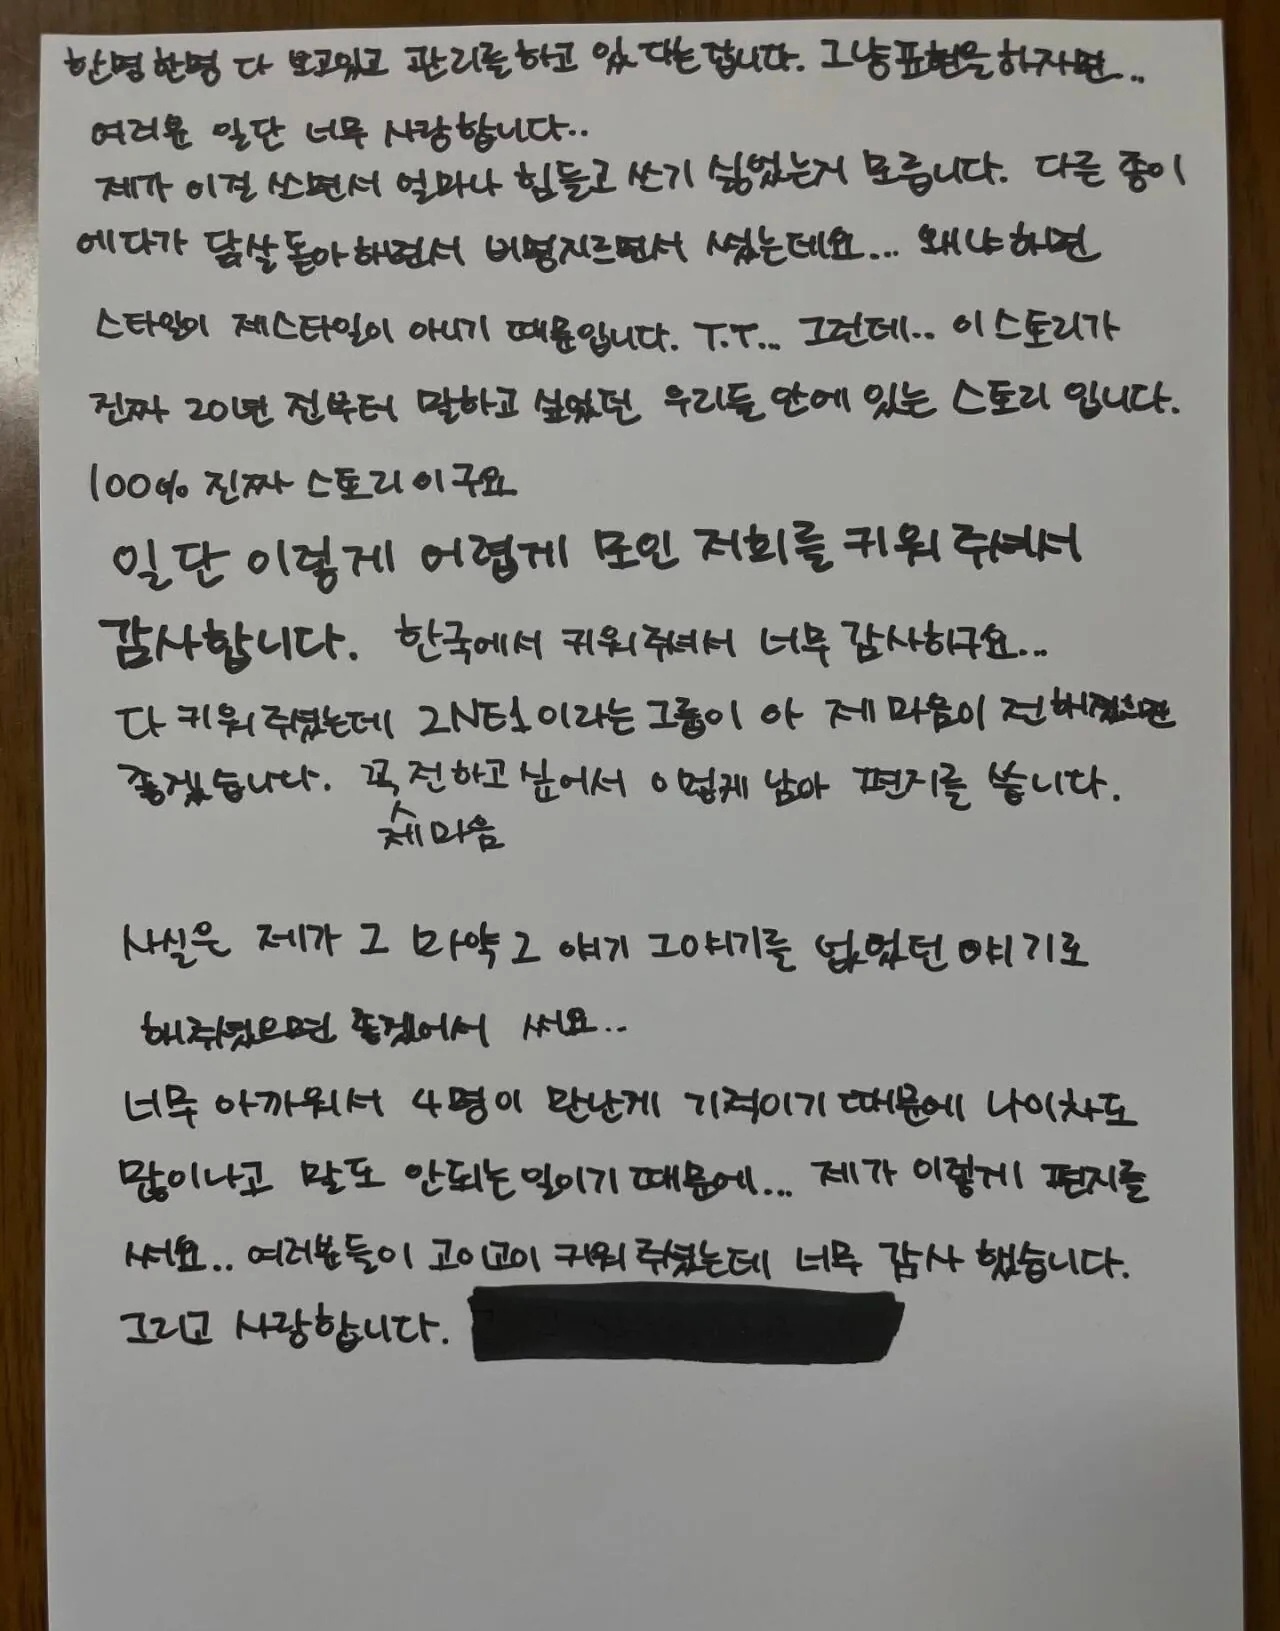 한명한명 다 보고있고 관리를하고 있 다는겁니다. 그냥표현을하자면...
여러분 일단 너무 사랑합니다..
제가 이걸 쓰면서 얼마나 힘들고 쓰기 싫었는지 모릅니다. 다른 종이
에다가 닭살돋아하면서 비명지르면서 썼는데요... 왜냐하면
스타일이 제스타일이 아니기 때문입니다. T.T... 그런데.. 이스토리가
진짜 20년 전부터 말하고 싶었던 우리들 안에 있는 스토리 입니다.
100% 진짜 스토리이구요
일단 이렇게 어렵게 모인 저희를 키워주셔서
감사합니다. 한국에서 키워주셔서 너무 감사하구요...
다 키워주셨는데 2NE1이라는그룹이 아 제마음이 전해졌으면
좋겠습니다. 꼭 전하고싶어서 이렇게 남아 편지를 씁니다.
제마음
사실은 제가 그 마약그 얘기 그얘기를 없었던 얘기로
해주셨으면 좋겠어서 써요..
너무 아까워서 4명이 만난게 기적이기때문에 나이차도
많이나고 말도 안되는일이기때문에... 제가 이렇게 편지를
써요.. 여러분들이 고이고이 키워주셨는데 너무 감사 했습니다.
그리고 사랑합니다.